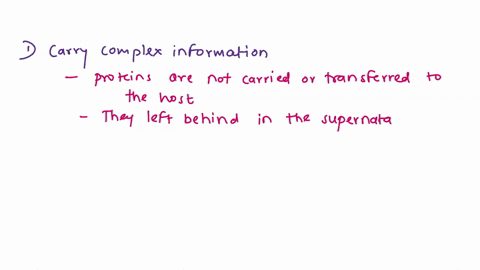 1) Carry complex information
- proteins are not carried or transferred to
the host
- They left behind in the supernata